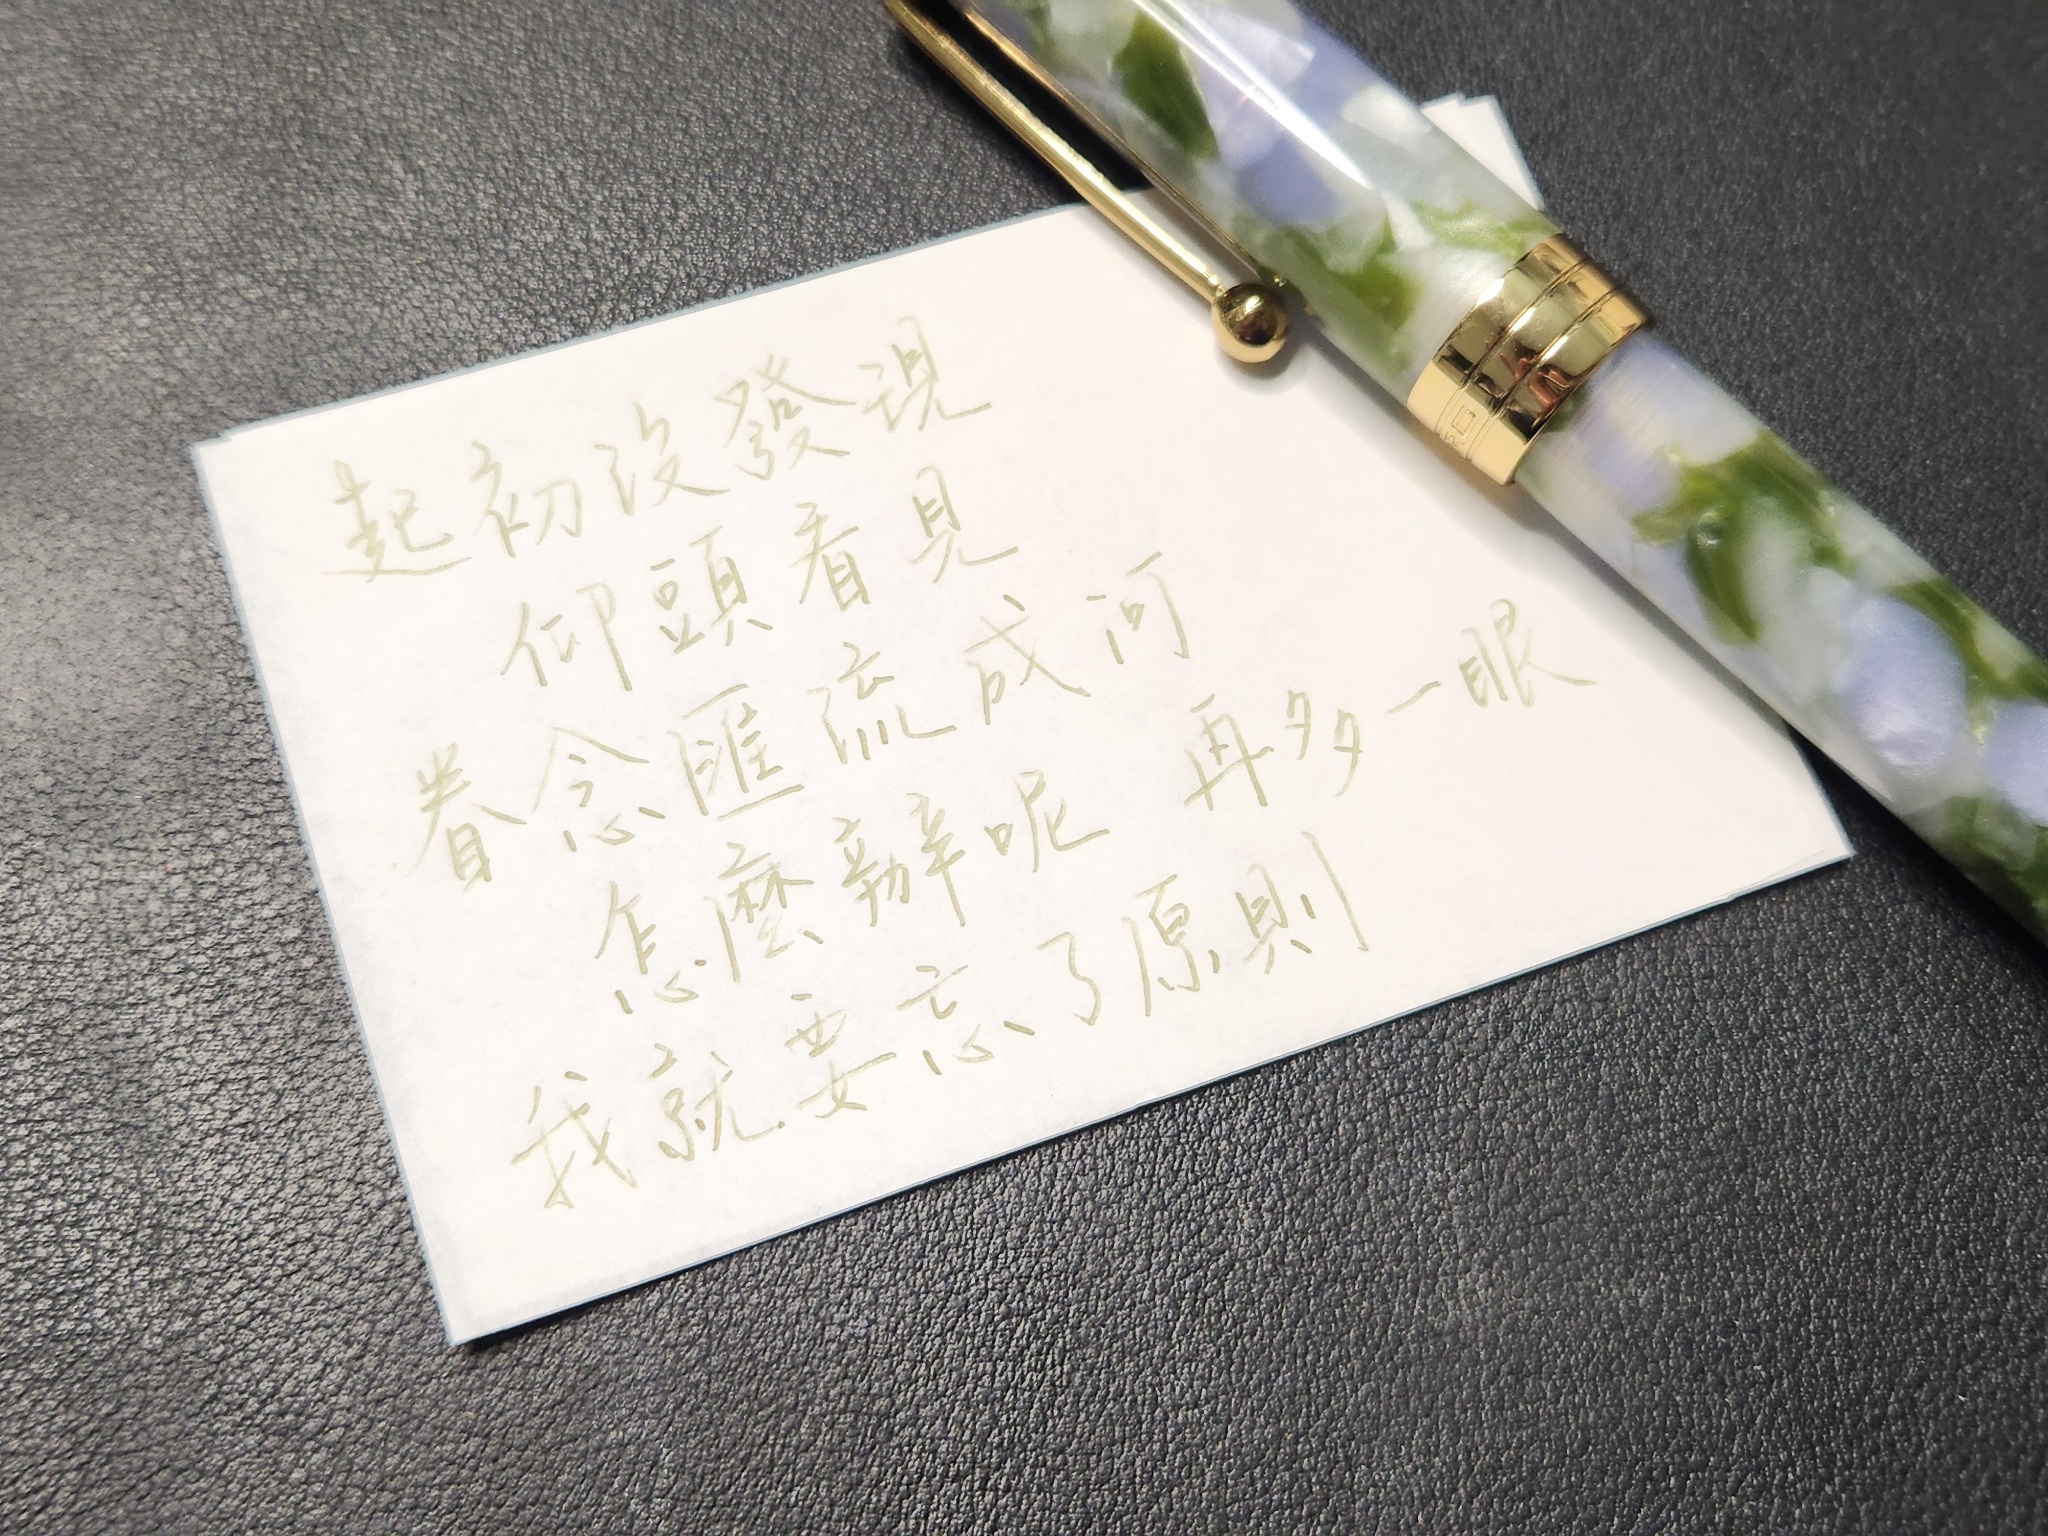 起初沒發現
仰頭看見
眷念匯流成河
怎麼辦呢 再多一眼
我就要忘了原則